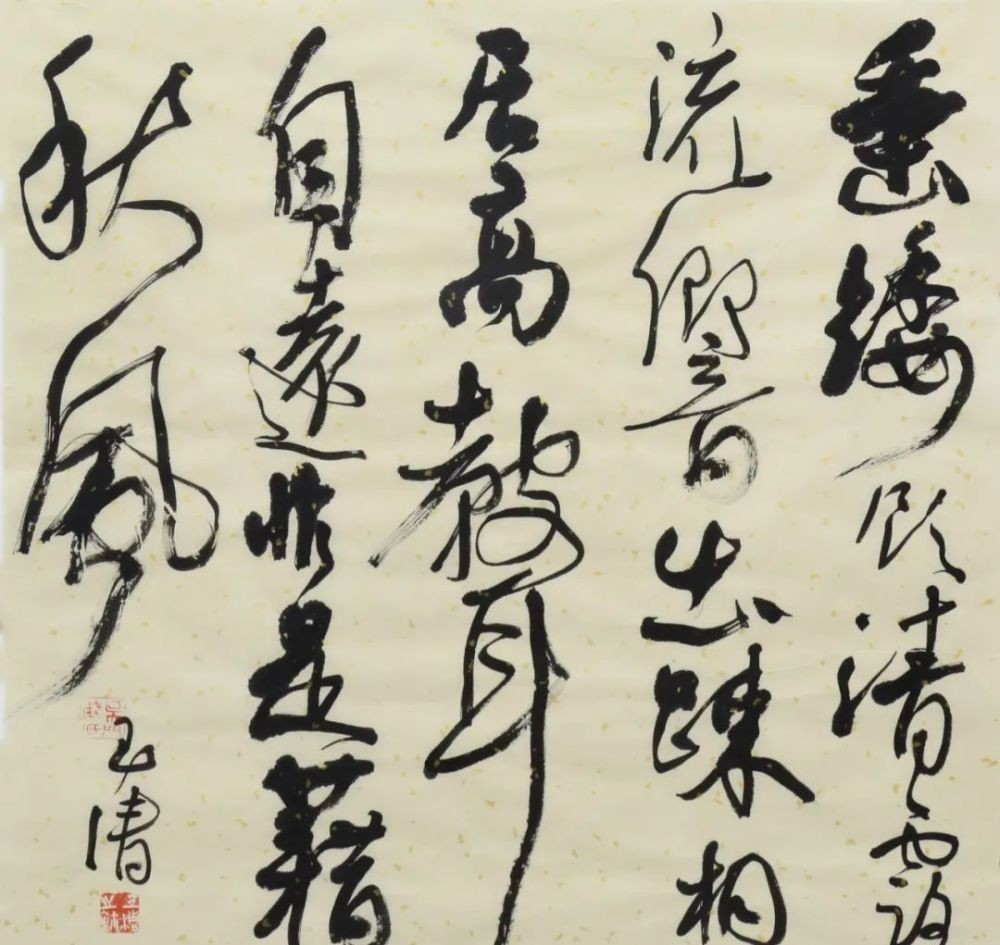 垂緌飲清露
流響出踈桐
居高聲
自遠非是藉
秋風